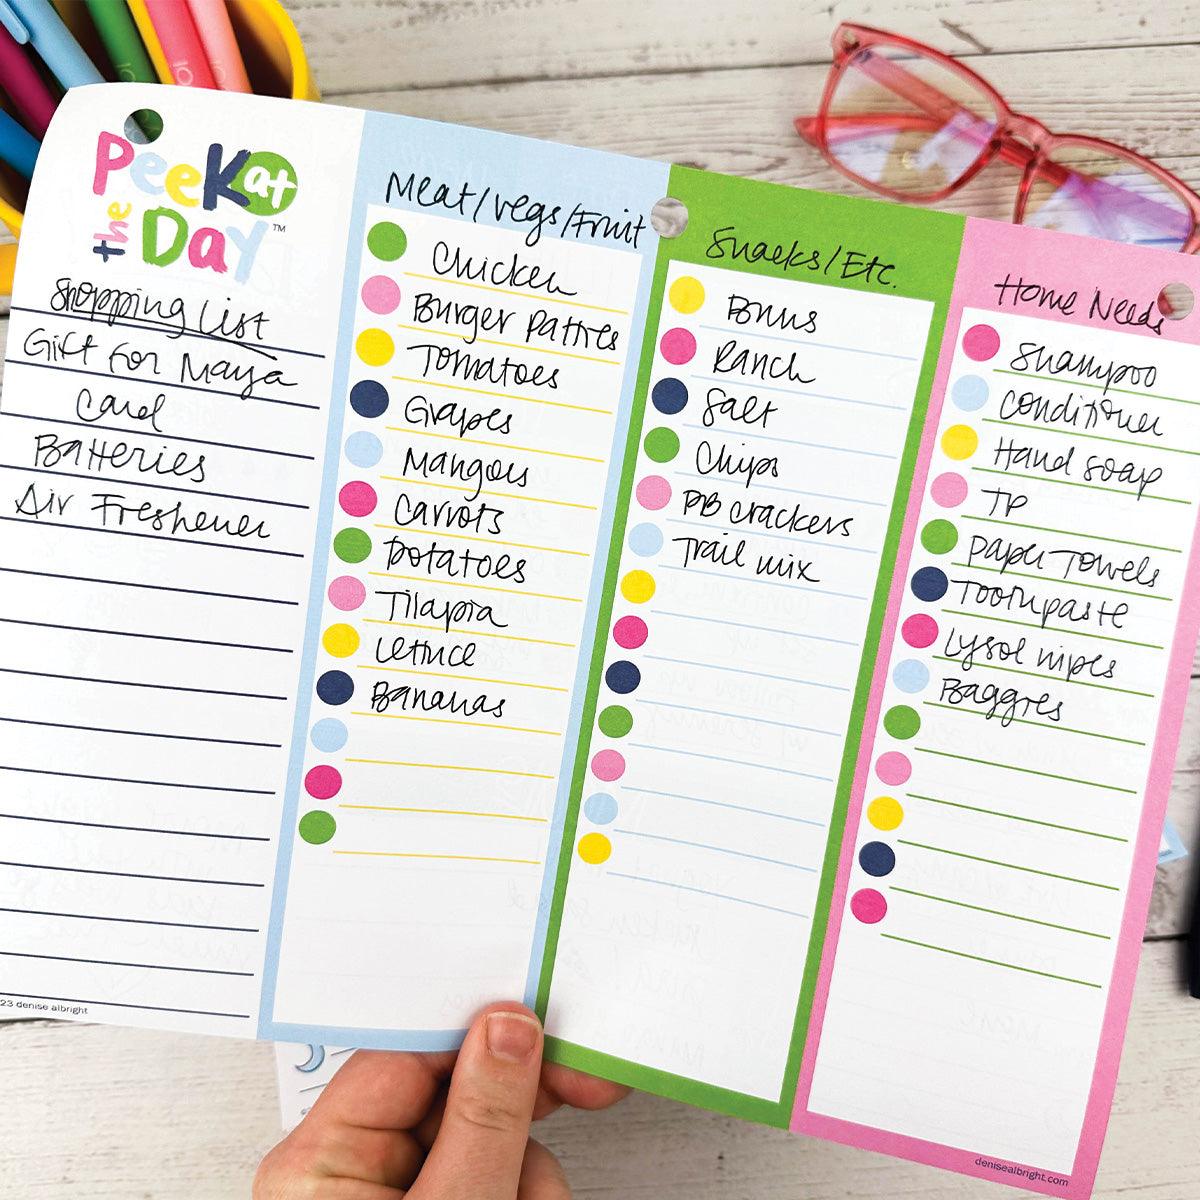 Peek at
the Day™
Shopping List
Gift for Maya
Card
Batteries
Air Freshener
23 denise albright
Meat/vegs/Fruit
Chicken
Burger Patties
Tomatoes
Grapes
Mangoes
Carrots
Potatoes
Tilapia
Lettuce
Bananas
Snacks/Etc.
Ranch
Salt
Chips
PB crackers
Trail mix
Home Needs
Shampoo
Conditioner
Hand soap
TP
Paper Towels
Toothpaste
Lysol wipes
Baggies
denisealbright.com